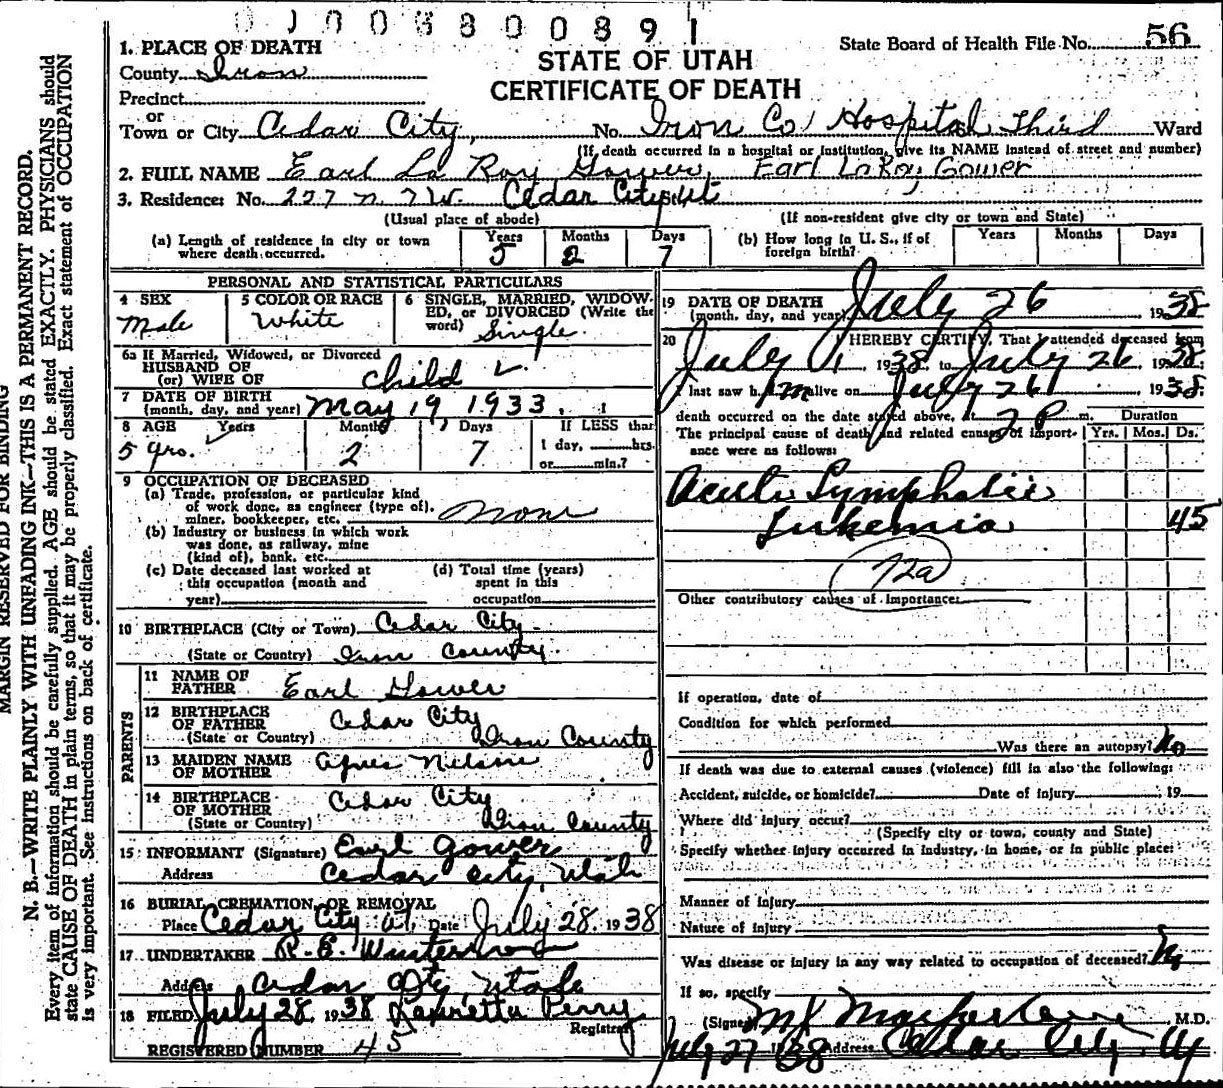 0 1 0 0 3 8 0 0 8 9 1
State Board of Health File No. 56
STATE OF UTAH
CERTIFICATE OF DEATH
1. PLACE OF DEATH
County Iron
Precinct
or
Town or City Cedar City, No. Iron Co Hospital Third Ward
(If death occurred in a hospital or institution, give its NAME instead of street and number)
2. FULL NAME Earl La Roy Gower, Earl LaRoy Gower
3. Residence: No. 227 N. 7 W. Cedar City Ut
(Usual place of abode) (If non-resident give city or town and State)
(a) Length of residence in city or town where death occurred. Years 5 Months 2 Days 7
(b) How long in U. S., if of foreign birth? Years Months Days
PERSONAL AND STATISTICAL PARTICULARS
4 SEX Male
5 COLOR OR RACE White
6 SINGLE, MARRIED, WIDOWED, or DIVORCED (Write the word) Single
6a If Married, Widowed, or Divorced
HUSBAND OF
(or) WIFE OF Child
7 DATE OF BIRTH
(month, day, and year) May 19, 1933.
8 AGE Years Months Days If LESS than
5 yrs. 2 7 1 day, hrs.
or min.?
9 OCCUPATION OF DECEASED
(a) Trade, profession, or particular kind
of work done, as engineer (type of),
miner, bookkeeper, etc. None
(b) Industry or business in which work
was done, as railway, mine
(kind of), bank, etc.
(c) Date deceased last worked at
this occupation (month and
year)
(d) Total time (years)
spent in this
occupation
10 BIRTHPLACE (City or Town) Cedar City
(State or Country) Iron County.
PARENTS
11 NAME OF
FATHER Earl Gower
12 BIRTHPLACE
OF FATHER Cedar City
(State or Country) Iron County
13 MAIDEN NAME
OF MOTHER Agnes Nelson
14 BIRTHPLACE
OF MOTHER Cedar City
(State or Country) Iron County
15 INFORMANT (Signature) Earl Gower
Address Cedar City, Utah
16 BURIAL, CREMATION, OR REMOVAL
Place Cedar City Ut. Date July 28. 1938
17 UNDERTAKER R. E.
Address Cedar City, Utah
18 FILED July 28 1938 Perry
Registrar
REGISTERED NUMBER 45
19 DATE OF DEATH
(month, day, and year) July 26 1938
20 I HEREBY CERTIFY, That I attended deceased from
July 1, 1938 to July 26 1938.
I last saw him alive on July 26 1938
death occurred on the date stated above, at 2 P m. Duration
The principal cause of death and related causes of importance were as follows: Yrs. Mos. Ds.
Acute Lymphatic
Lukemia 45
72a
Other contributory causes of importance:
If operation, date of
Condition for which performed
Was there an autopsy? No
If death was due to external causes (violence) fill in also the following:
Accident, suicide, or homicide? Date of injury 19
Where did injury occur?
(Specify city or town, county and State)
Specify whether injury occurred in industry, in home, or in public place:
Manner of injury
Nature of injury
Was disease or injury in any way related to occupation of deceased? No
If so, specify
(Signed) M J Macfarlane M.D.
July 27 1938 Address Cedar City. Ut
MARGIN RESERVED FOR BINDING
N. B.—WRITE PLAINLY WITH UNFADING INK—THIS IS A PERMANENT RECORD.
Every item of information should be carefully supplied. AGE should be stated EXACTLY. PHYSICIANS should
state CAUSE OF DEATH in plain terms, so that it may be properly classified. Exact statement of OCCUPATION
is very important. See instructions on back of certificate.